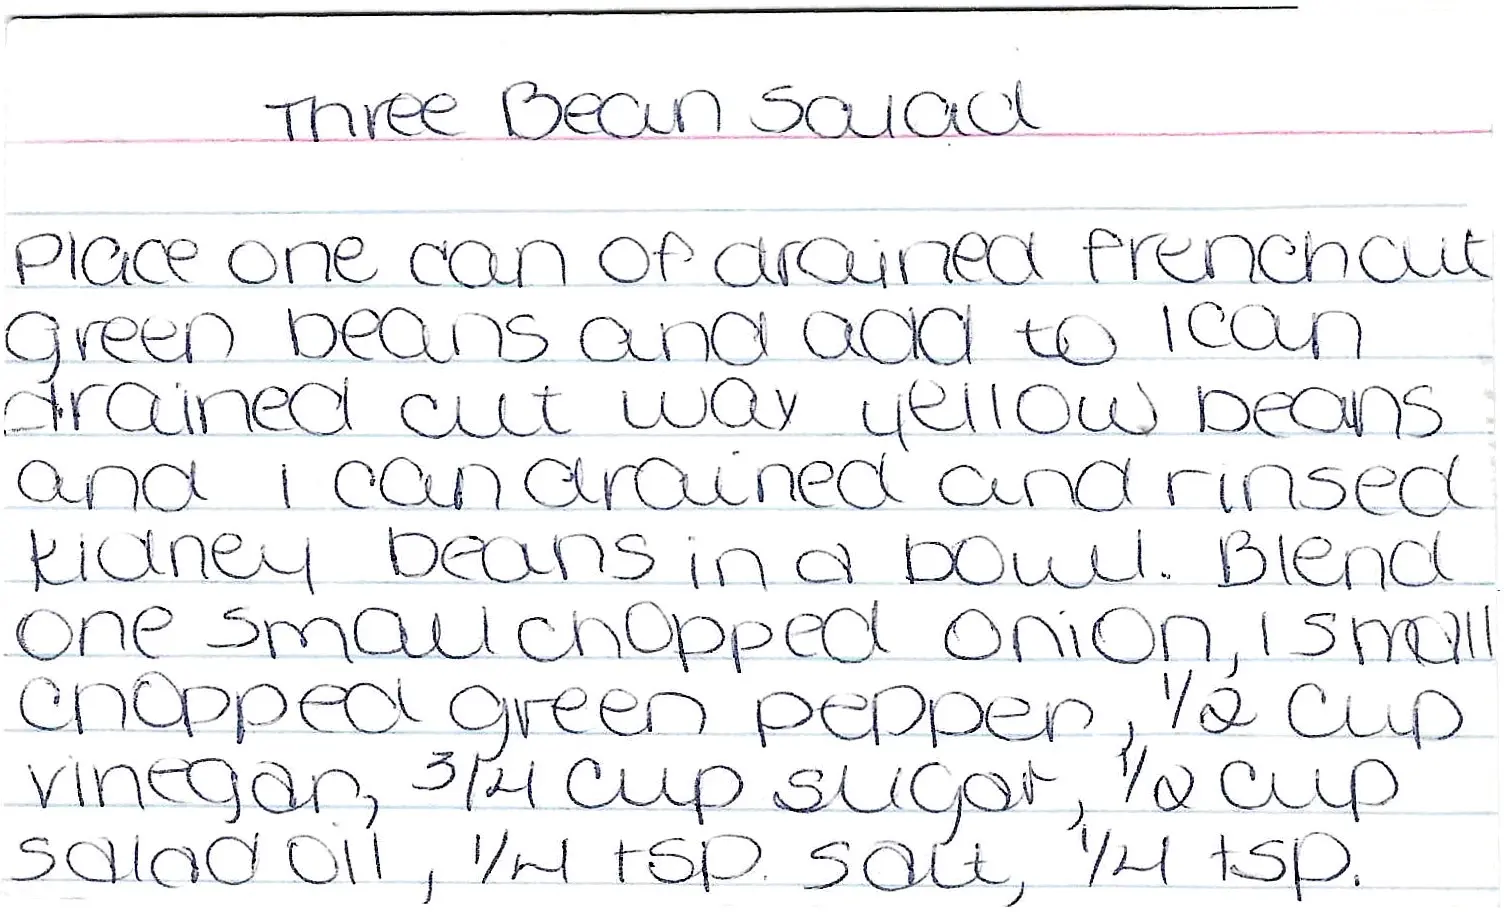 Three Bean Salad
Place one can of drained frenchcut
green beans and add to 1 can
drained cut wax yellow beans
and 1 can drained and rinsed
kidney beans in a bowl. Blend
one small chopped onion, 1 small
chopped green pepper, 1/2 cup
vinegar, 3/4 cup sugar, 1/2 cup
salad oil, 1/4 tsp. salt, 1/4 tsp.